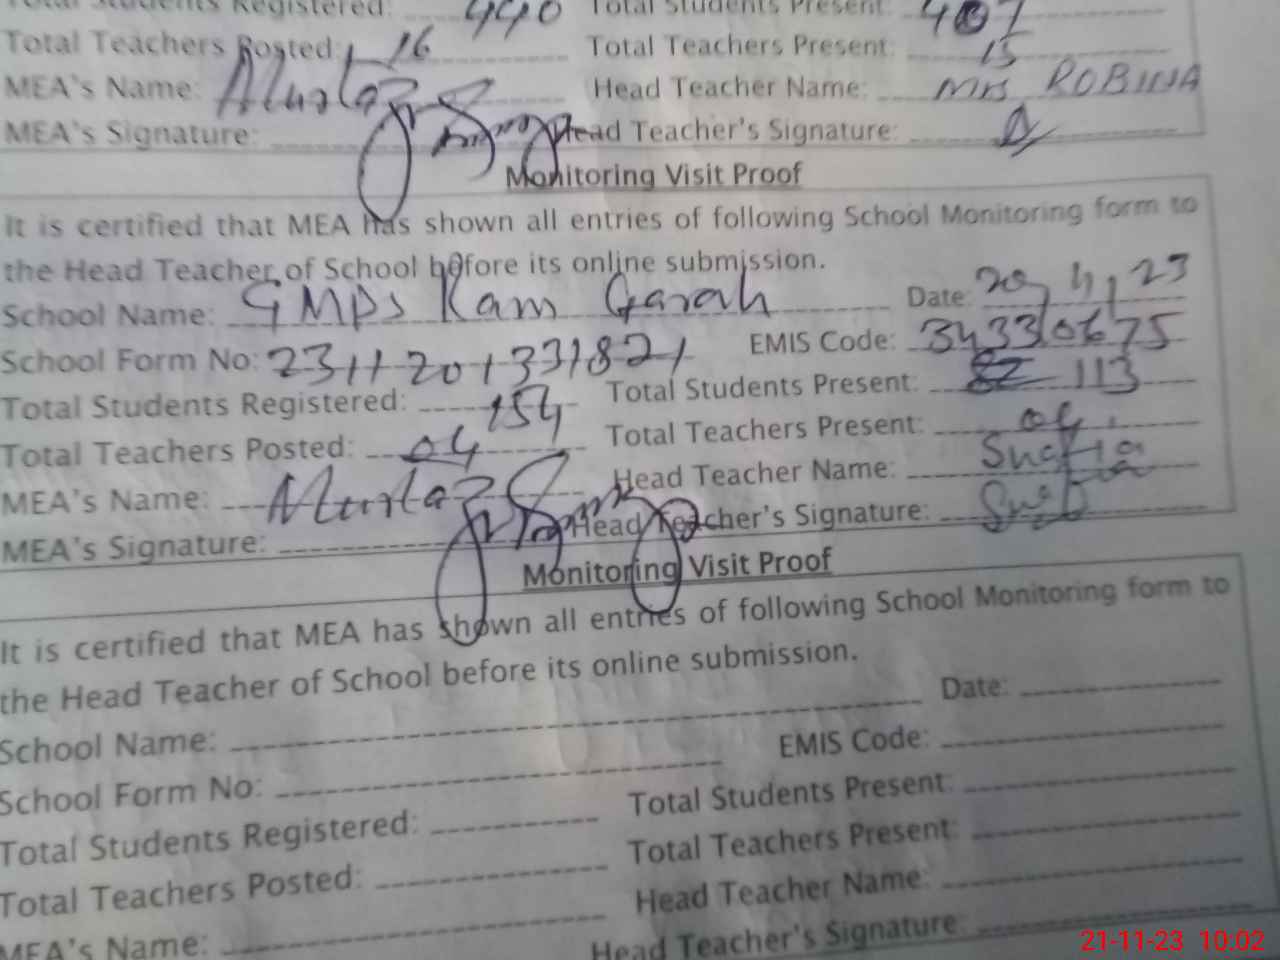 Total Students Registered: 440 Total Students Present: 407
Total Teachers Posted: 16 Total Teachers Present: 15
MEA's Name: Murtaz Head Teacher Name: Mrs ROBINA
MEA's Signature: Head Teacher's Signature:
Monitoring Visit Proof
It is certified that MEA has shown all entries of following School Monitoring form to
the Head Teacher of School before its online submission.
School Name: GMPS Kam Garah Date: 20, 11, 23
School Form No: 2311201331821 EMIS Code: 34330675
Total Students Registered: 154 Total Students Present: 113
Total Teachers Posted: 04 Total Teachers Present: 04
MEA's Name: Murtaz Head Teacher Name:
MEA's Signature: Head Teacher's Signature:
Monitoring Visit Proof
It is certified that MEA has shown all entries of following School Monitoring form to
the Head Teacher of School before its online submission.
School Name: Date:
School Form No: EMIS Code:
Total Students Registered: Total Students Present:
Total Teachers Posted: Total Teachers Present:
MEA's Name: Head Teacher Name:
Head Teacher's Signature:
21-11-23 10:02